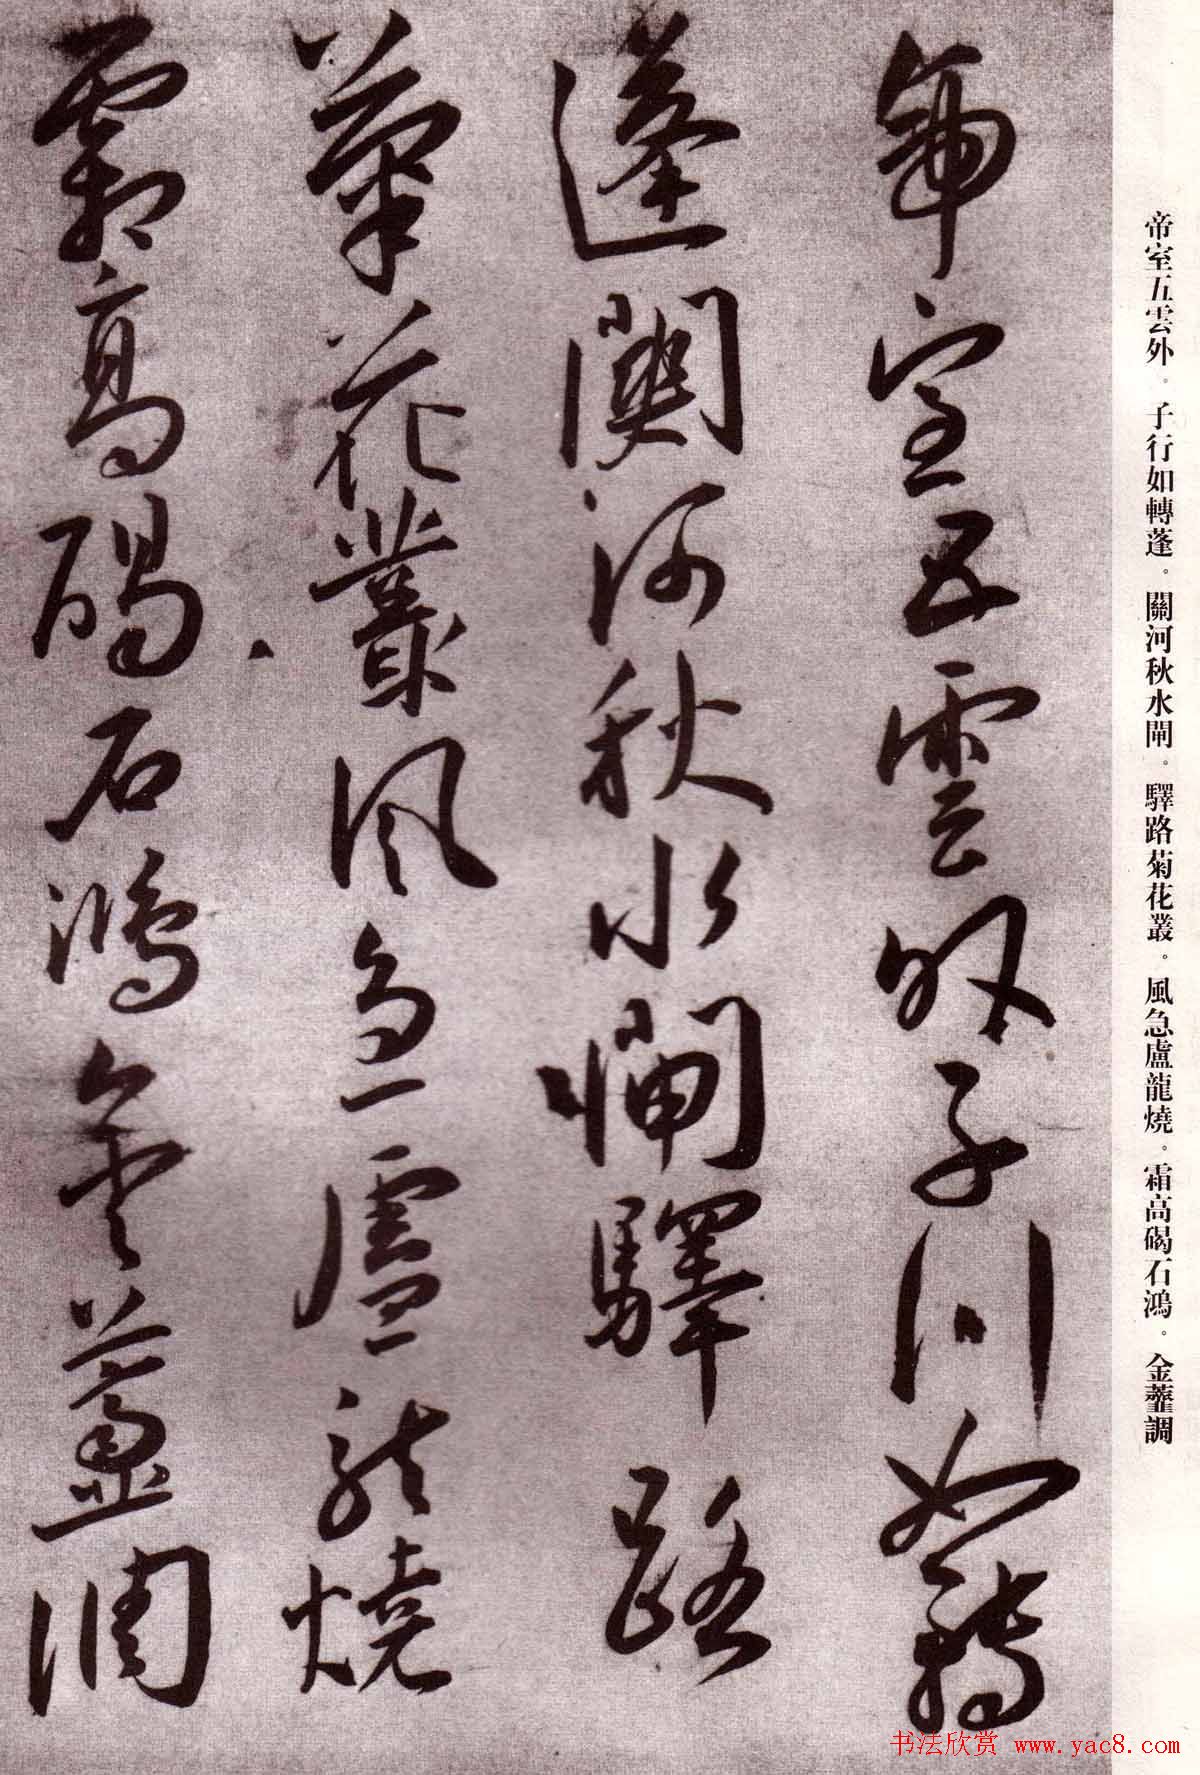 帝室五雲外。子行如轉蓬。關河秋水閘。驛路菊花叢。風急盧龍燒。霜高碣石鴻。金虀調
帝室五雲外子行如轉
蓬關河秋水驛路
菊花叢風急盧龍燒
霜高碣石鴻金虀調
书法欣赏 www.yac8.com